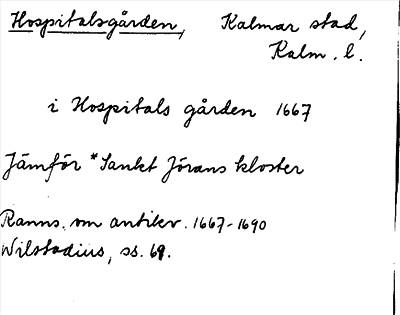 Hospitalsgården, Kalmar stad,
Kalm. l.
i Hospitals gården 1667
Jämför *Sankt Jörans kloster
Ranns. om antikv. 1667-1690
Wilstadius, ss. 69.